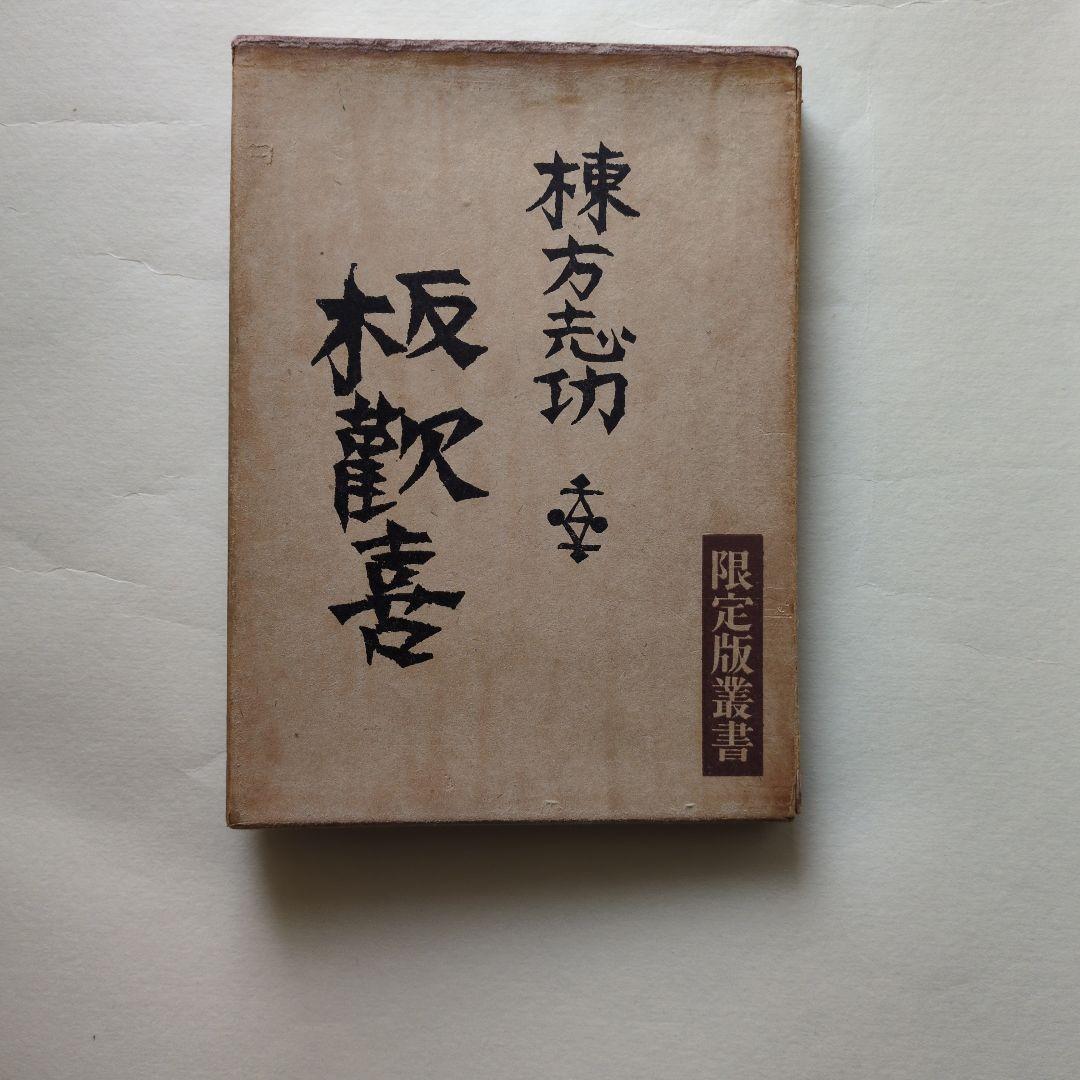 限定版叢書
棟方志功
板歡喜